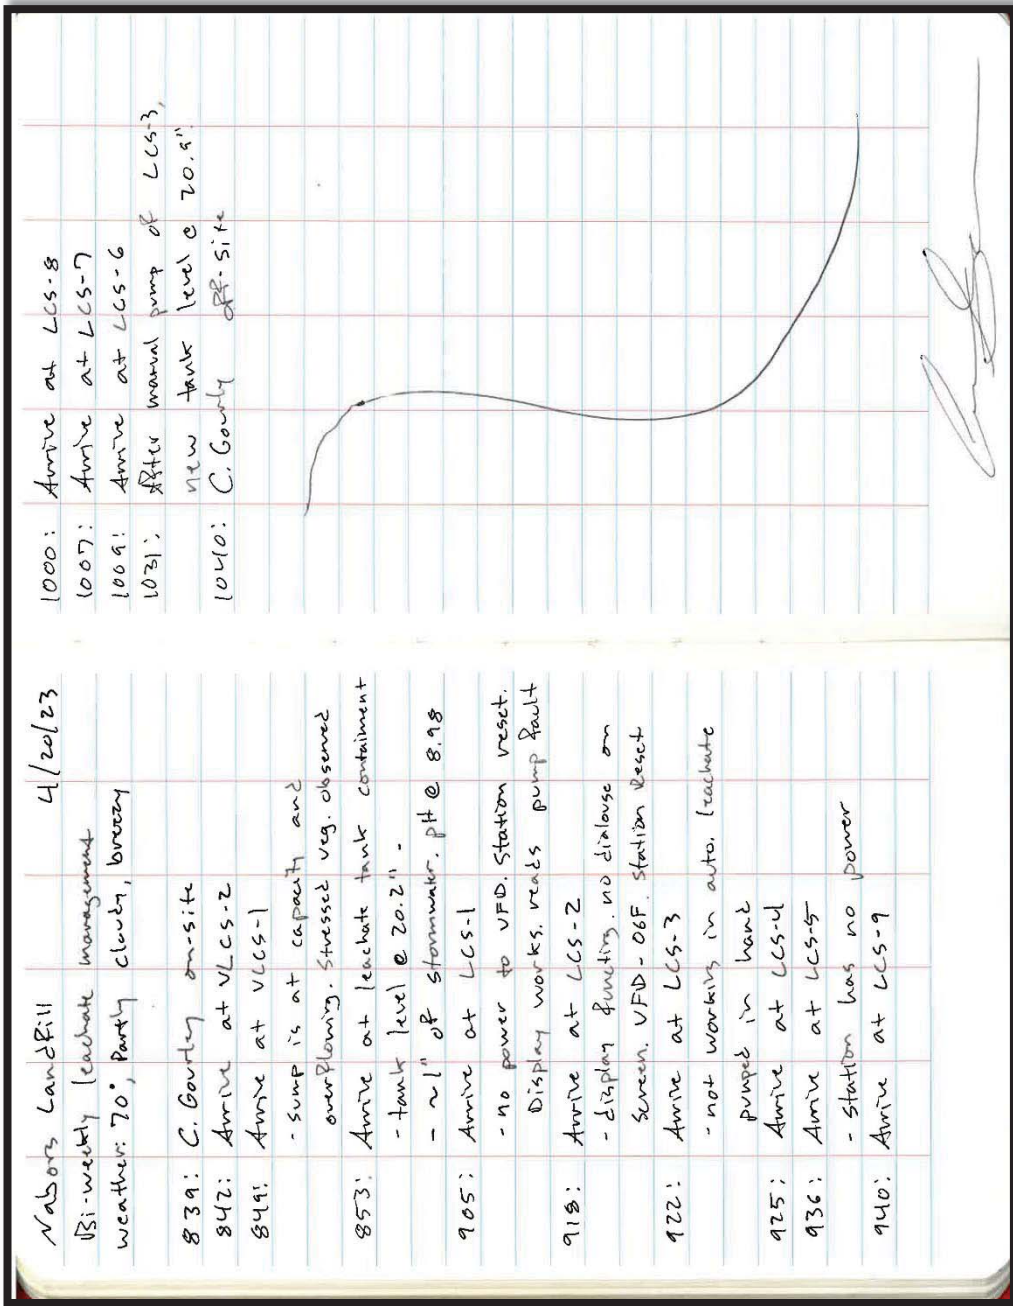 Nabors Landfill 4/20/23
Bi-weekly leachate management
weather: 70°, Partly cloudy, breezy
839: C. Gourley on-site
842: Arrive at VLCS-2
849: Arrive at VLCS-1
- sump is at capacity and
overflowing. Stressed veg. observed
853: Arrive at leachate tank containment
- tank level @ 20.2".
- ~1" of stormwater. pH @ 8.98
905: Arrive at LCS-1
- no power to VFD. Station reset.
Display works. reads pump fault
918: Arrive at LCS-2
- display functing. no dialouse on
screen. VFD-06F. Station Reset
922: Arrive at LCS-3
- not working in auto. leachate
pumped in hand
925: Arrive at LCS-4
936: Arrive at LCS-5
- station has no power
940: Arrive at LCS-9
1000: Arrive at LCS-8
1007: Arrive at LCS-7
1009: Arrive at LCS-6
1031: After manual pump of LCS-3,
new tank level @ 20.9".
1040: C. Gourly off-site